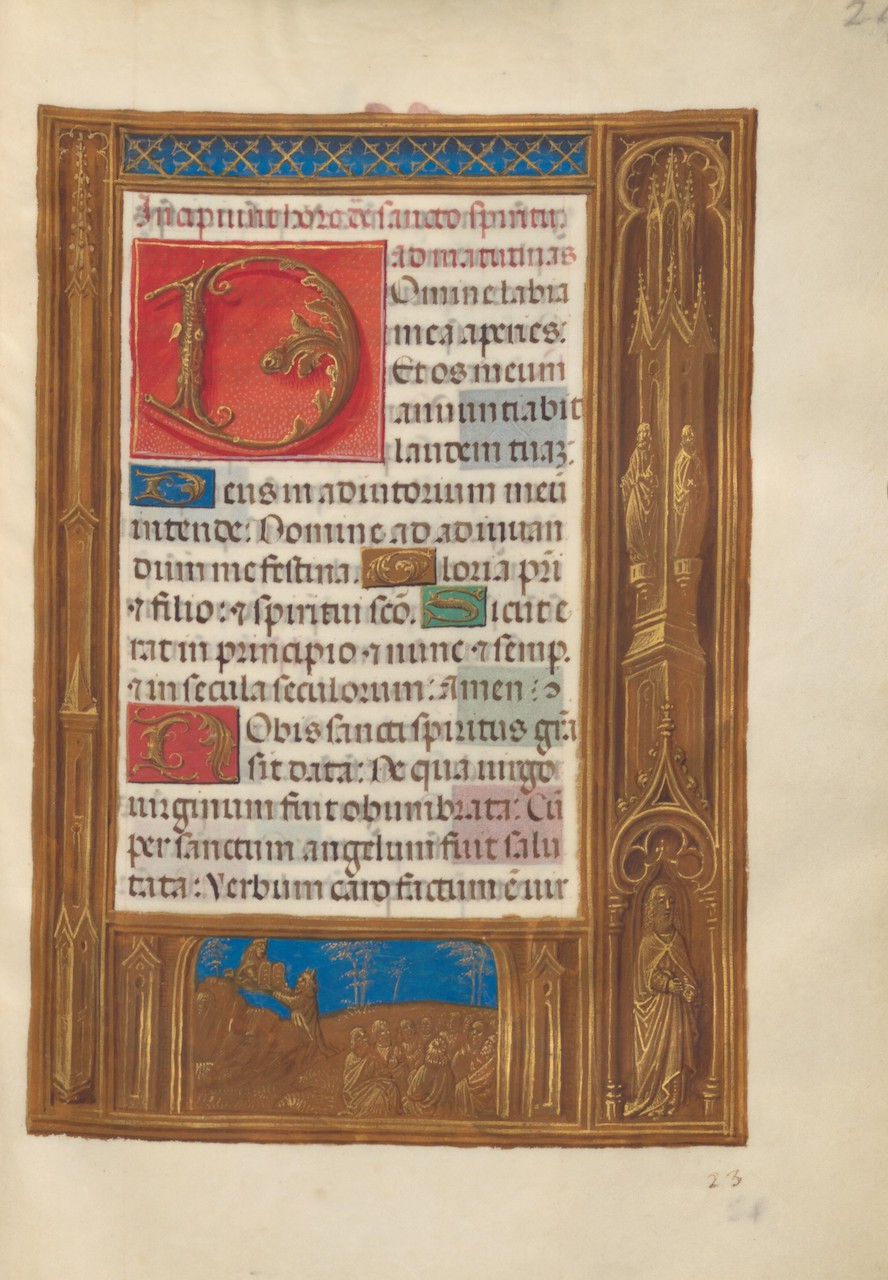 Incipiunt hore de sancto spiritu.
ad matutinas
Domine labia
mea aperies:
Et os meum
annuntiabit
laudem tuaꝫ:
Deus in adiutorium meū
intende: Domine ad adiuuan
dum me festina. Gloria pr̄i
⁊ filio: ⁊ spiritui scō. Sicut e
rat in principio ⁊ nunc ⁊ semp.
⁊ in secula seculorum: Amen :
Nobis sancti spiritus gr̄a
sit data: De qua uirgo
uirginum fuit obumbrata: Cū
per sanctum angelum fuit salu
tata: Verbum caro factum ē uir
23